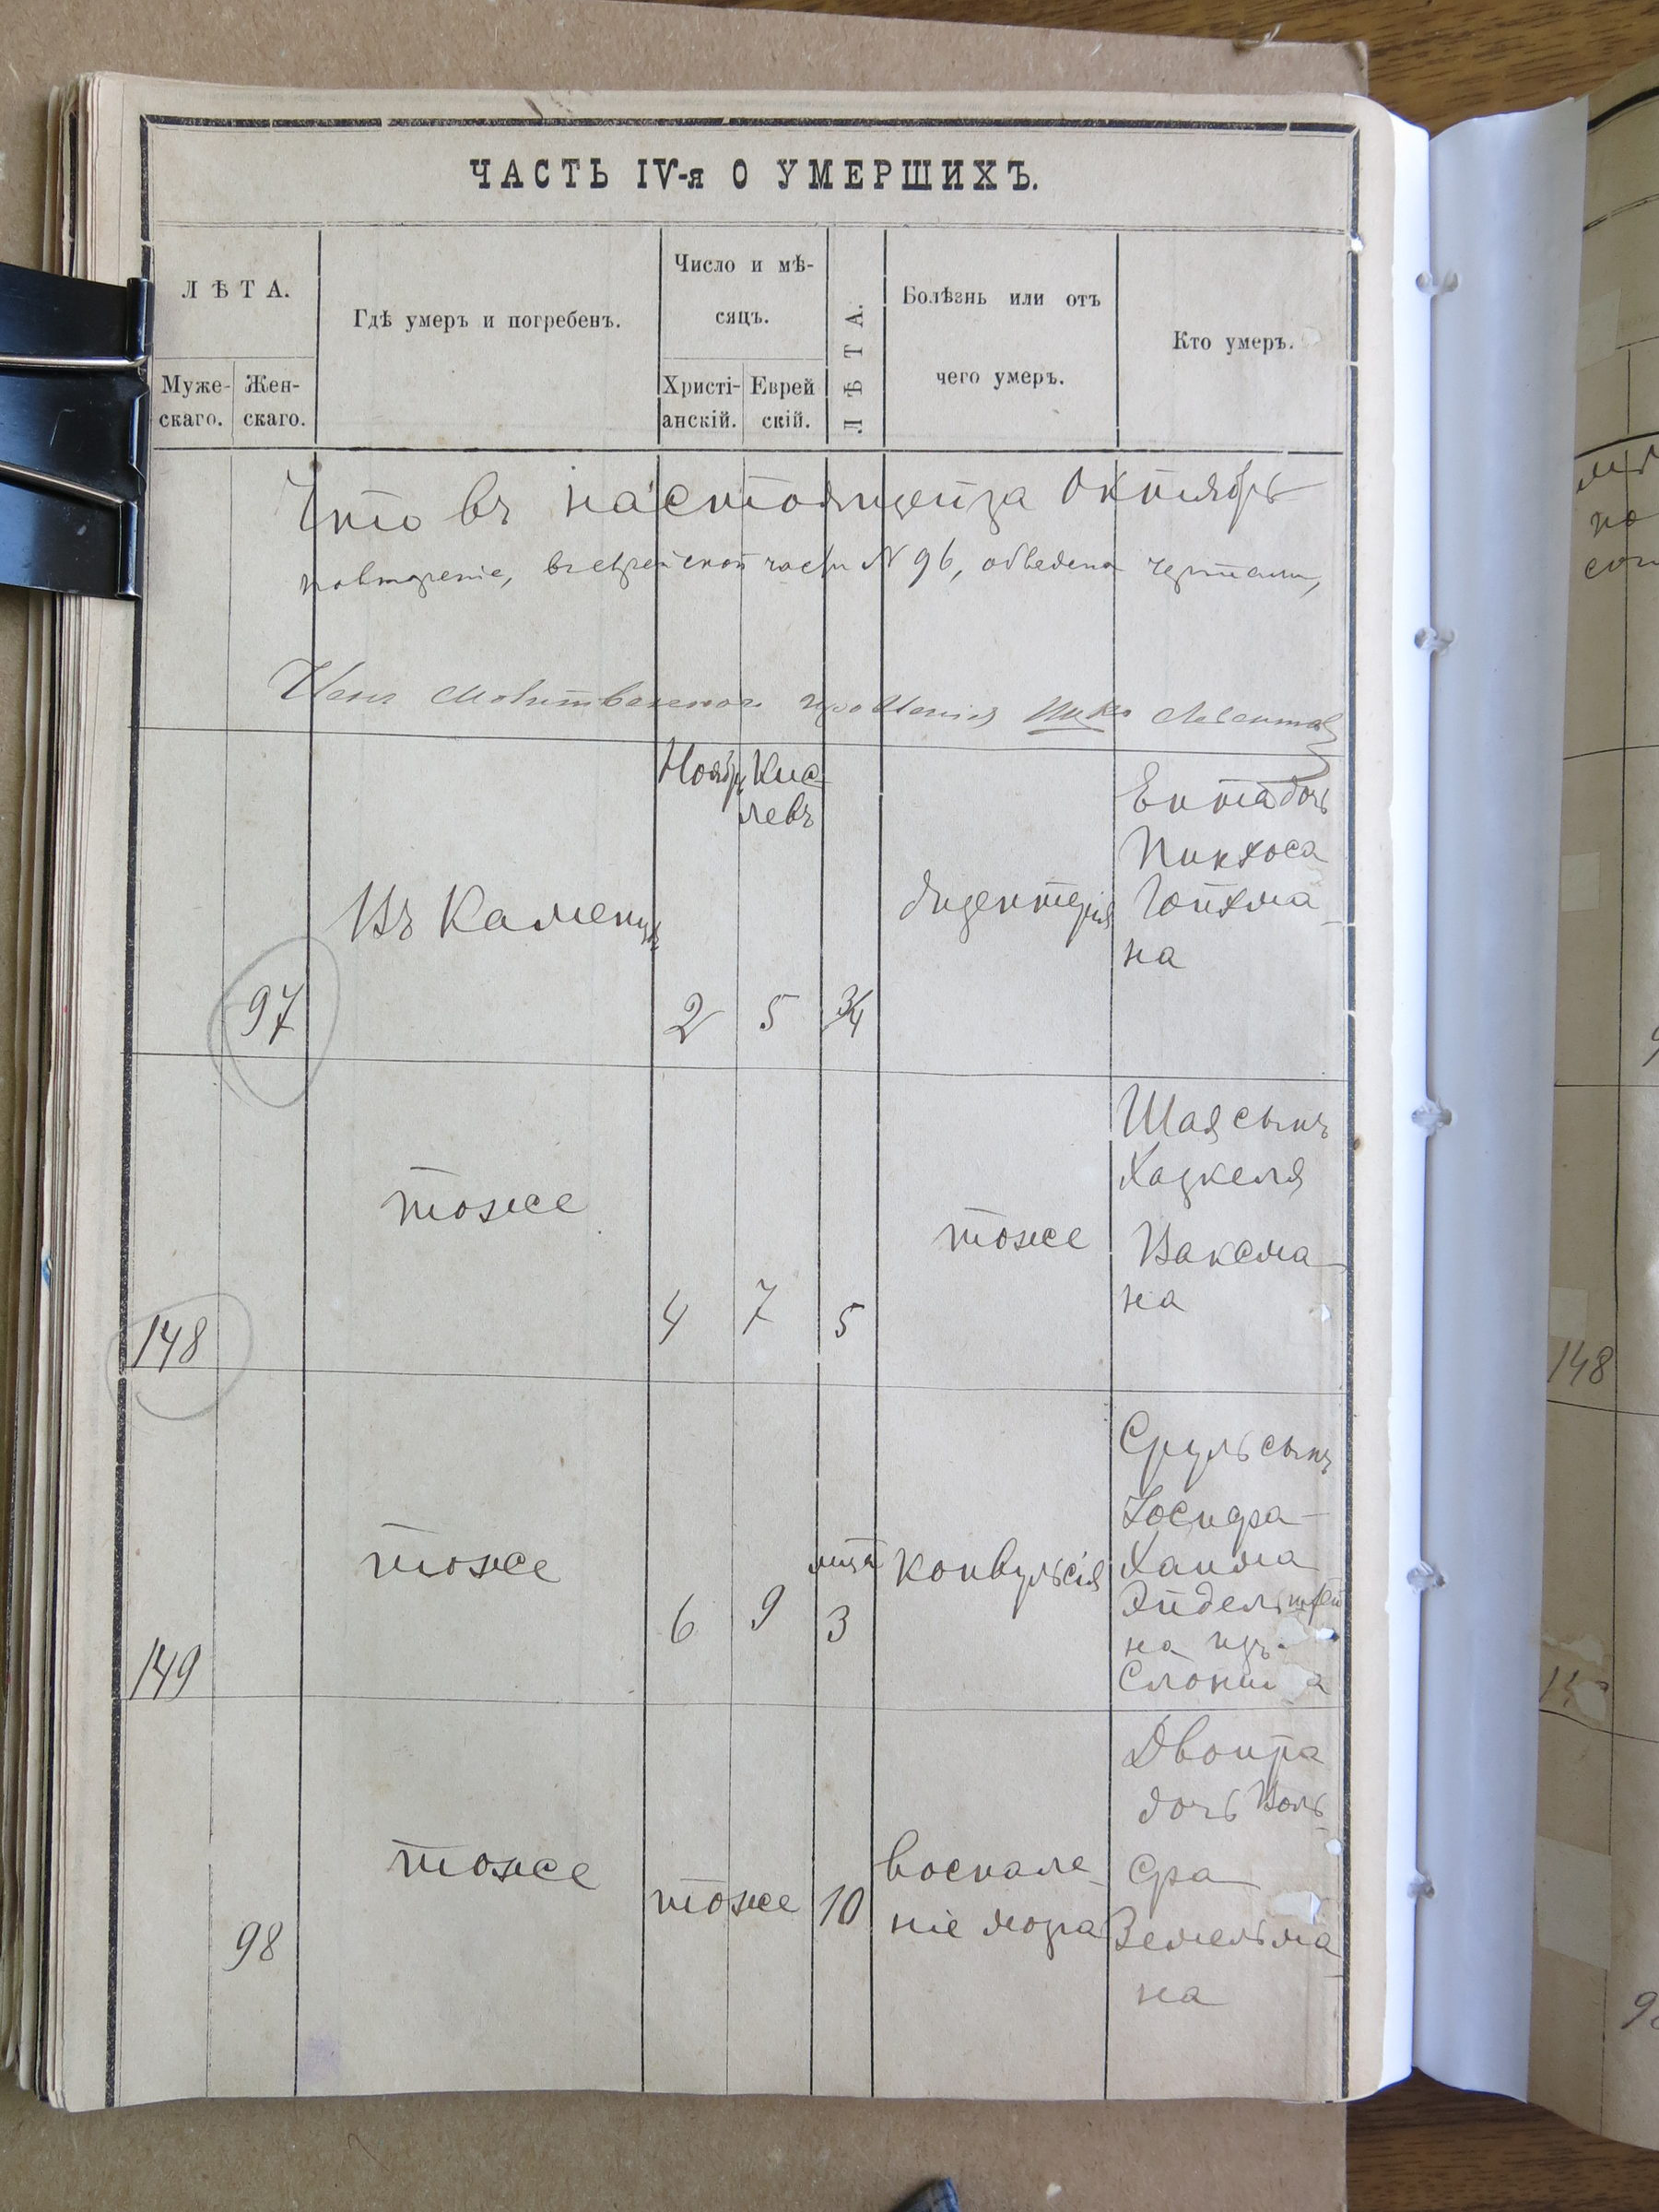 ЧАСТЬ IV-я О УМЕРШИХЪ.
ЛѢТА.
Муже-
скаго.
Жен-
скаго.
Гдѣ умеръ и погребенъ.
Число и мѣ-
сяцъ.
Христі-
анскій.
Еврей
скій.
ЛѢТА.
Болѣзнь или отъ
чего умеръ.
Кто умеръ.
Что въ настоящей за Октябрь
повтореніе, въ еврейской части N 96, обведена чертами,
Членъ Молитвеннаго правленія
97
Въ Каменцѣ
Ноябр
2
Кис-
левъ
5
3/4
дизентерія
Ентта дочь
Пинхоса
Гойхма-
на
148
тоже
4
7
5
тоже
Шая сынъ
Хацкеля
Ваксма-
на
149
тоже
6
9
мца
3
конвульсія
Сруль сынъ
Іосифа-
Хаима
Эйдельштей
на изъ
Слонима
98
тоже
тоже
10
воспале-
ніе мозга
Двойра
дочь Воль-
фа
Земельма-
на
148